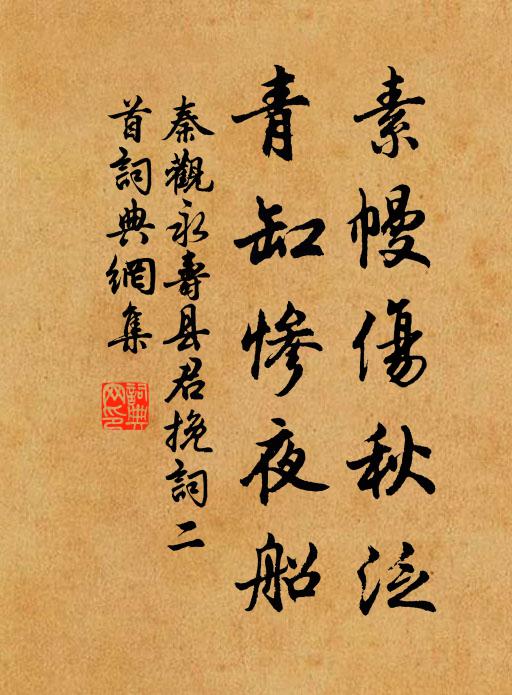 素幔傷秋泛
青缸慘夜船
秦觀永壽县君挽詞二
首詞典網集
詞典
网印